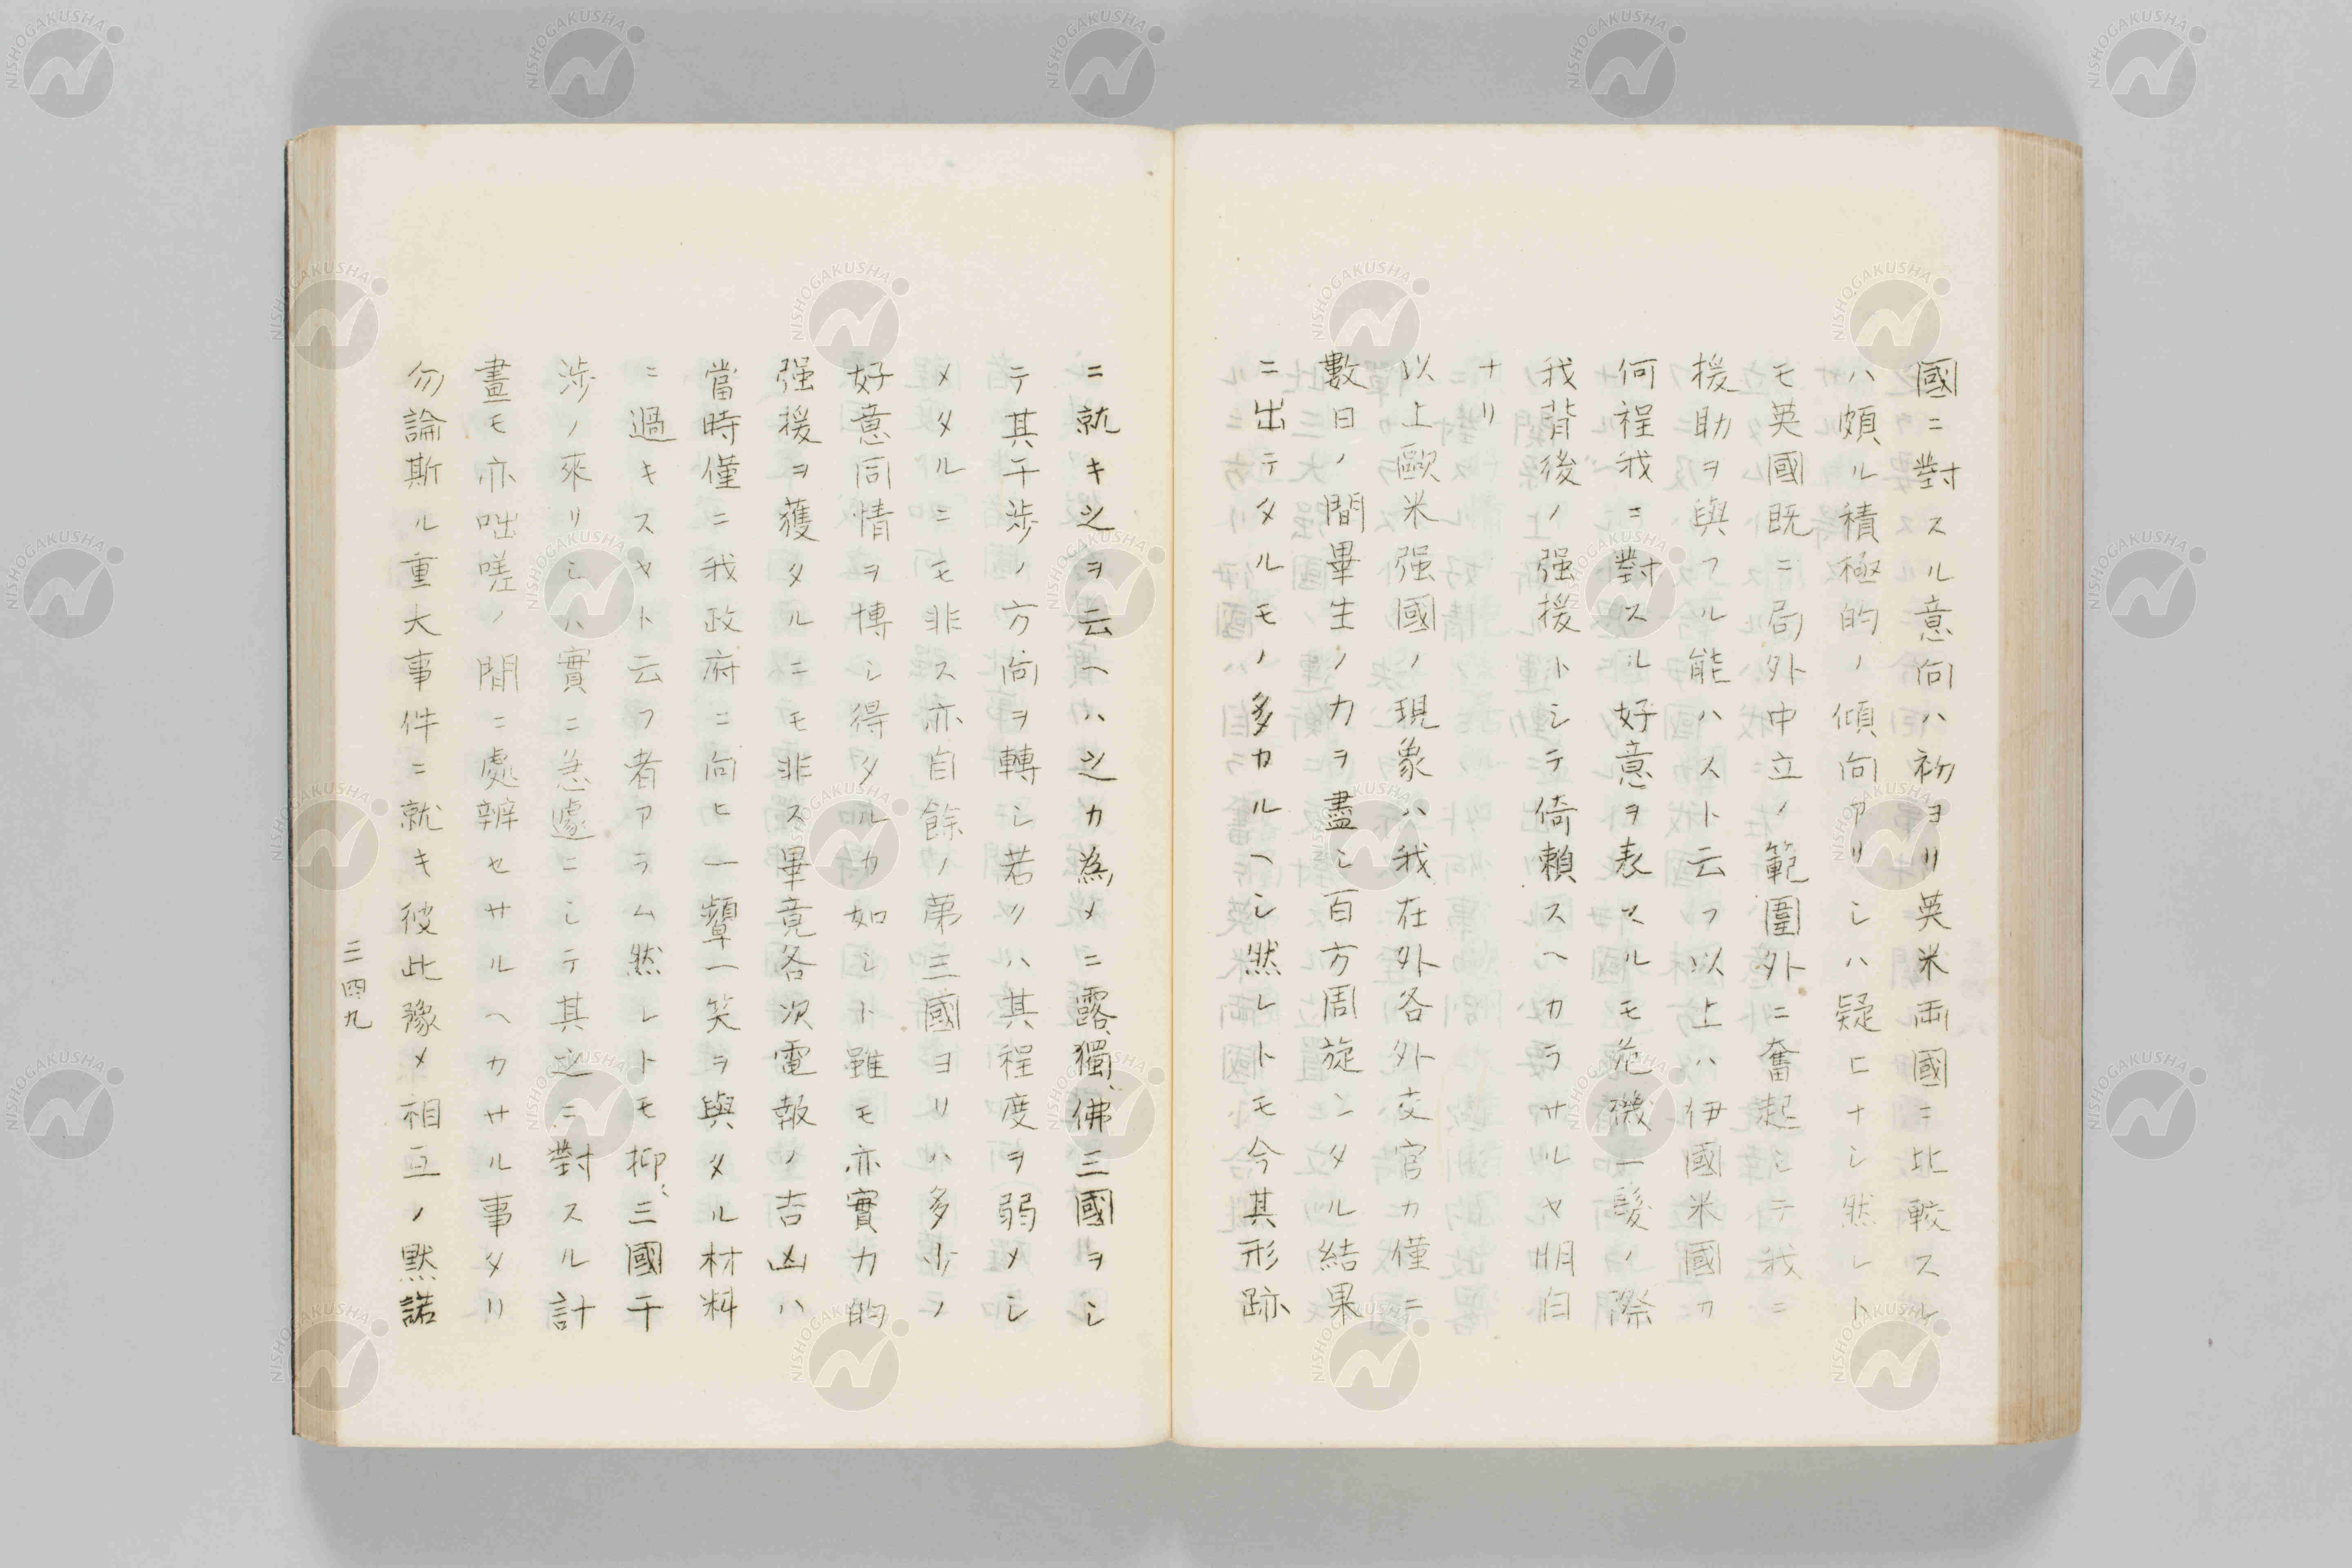 國ニ對スル意向ハ初ヨリ英米両國ニ比較スル
ハ頗ル積極的ノ傾向アリシハ疑ヒナシ然レト
モ英國既ニ局外中立ノ範圍外ニ奮起シテ我ニ
援助ヲ與フル能ハスト云フ以上ハ伊國米國カ
何程我ニ對スル好意ヲ表スルモ危機一髮ノ際
我背後ノ强援トシテ倚賴スヘカラサルヤ明白
ナリ
以上歐米强國ノ現象ハ我在外各外交官カ僅ニ
數日ノ間畢生ノカヲ盡シ百方周旋シタル結果
ニ出テタルモノ多カルヘシ然レトモ今其形跡
ニ就キ之ヲ云ヘハ之カ為メニ露、獨、佛三國ヲシ
テ其干涉ノ方向ヲ轉シ若クハ其程度ヲ弱メシ
メタルニモ非ス亦自餘ノ第三國ヨリハ多少ノ
好意同情ヲ博シ得タルカ如シト雖モ亦實力的
强援ヲ獲タルニモ非ス畢竟各次電報ノ吉凶ハ
當時僅ニ我政府ニ向ヒ一顰一笑ヲ與タル材料
ニ過キスヤト云フ者アラム然レトモ抑、三國干
涉ノ來リシハ實ニ急遽ニシテ其之ニ對スル計
畫モ亦咄嗟ノ間ニ處辨セサルヘカサル事タリ
勿論斯ル重大事件ニ就キ彼此豫メ相互ノ黙諾
三四九
NISHOGAKUSHA